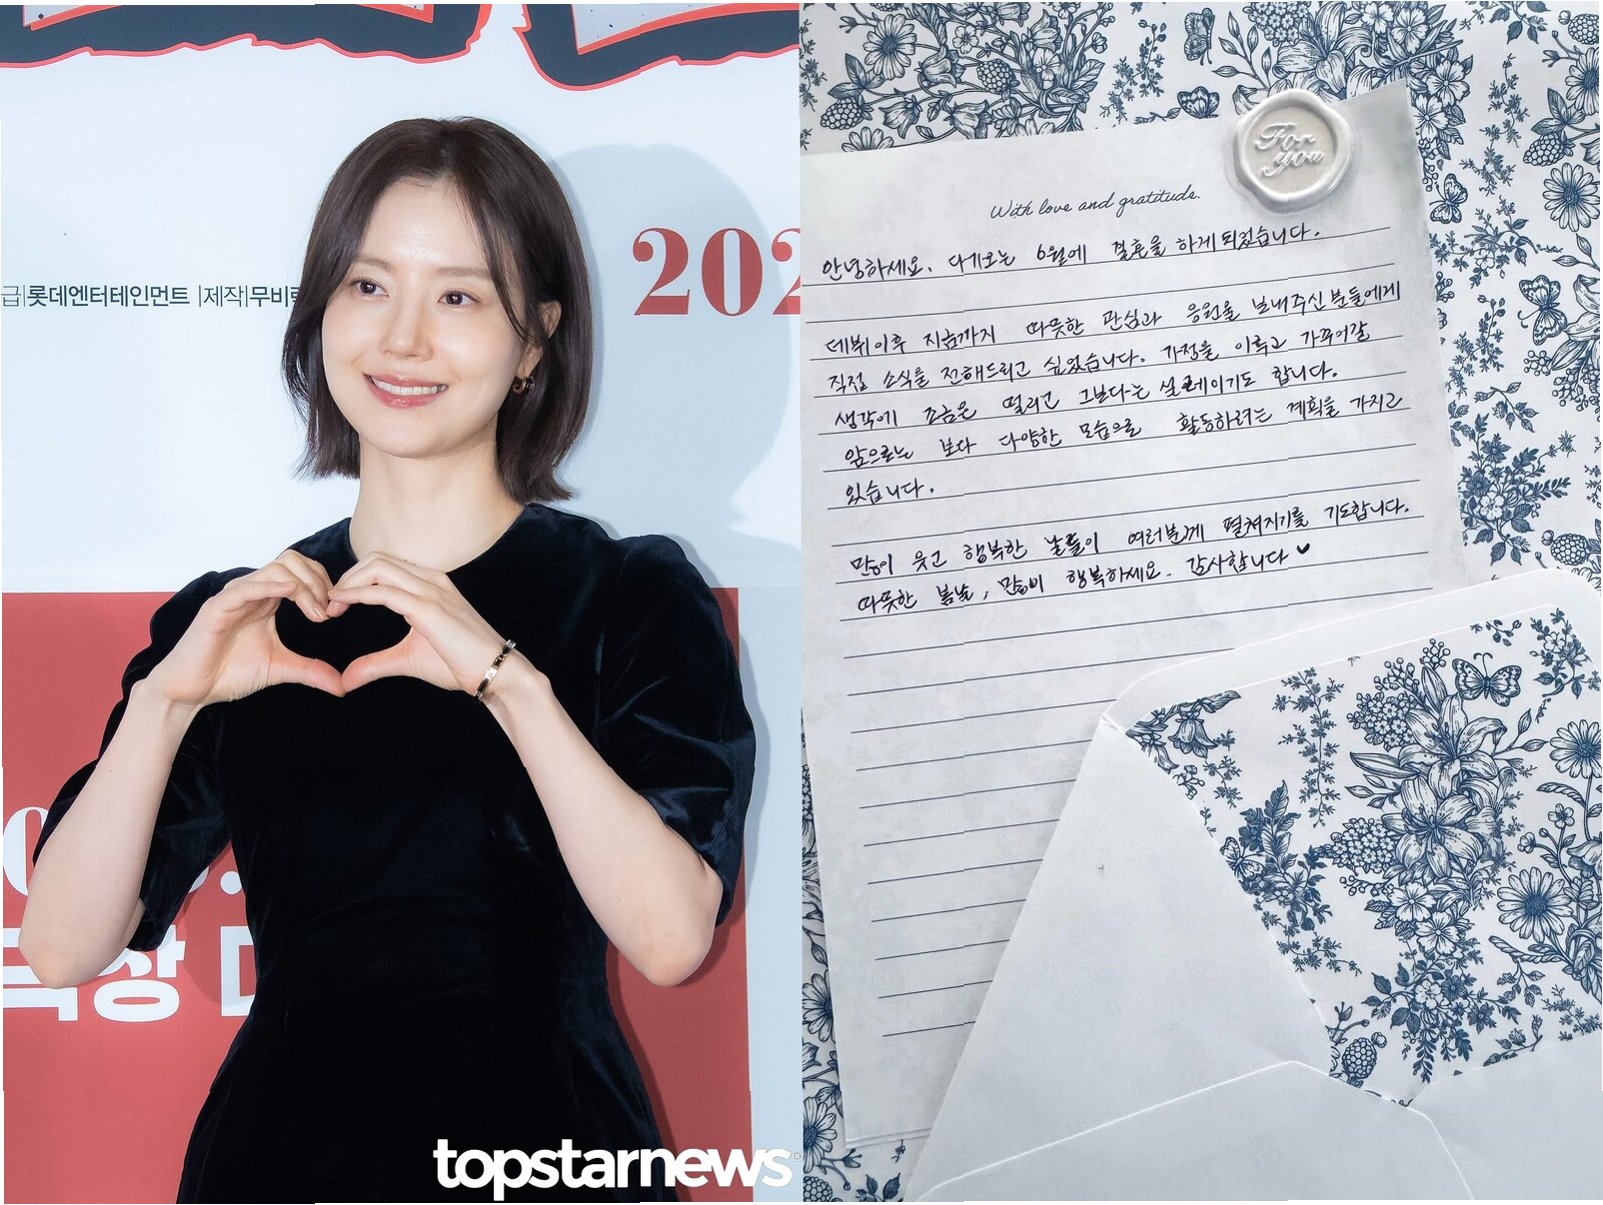 202
급|롯데엔터테인먼트 |제작|무비
극장
topstarnews
For you
With love and gratitude.
안녕하세요. 다가오는 6월에 결혼을 하게되었습니다.
데뷔이후 지금까지 따뜻한 관심과 응원을 보내주신 분들에게
직접 소식을 전해드리고 싶었습니다. 가정을 이루고 가꾸어갈
생각에 조금은 떨리고 그보다는 설레이기도 합니다.
앞으로는 보다 다양한 모습으로 활동하려는 계획을 가지고
있습니다.
많이 웃고 행복한 날들이 여러분께 펼쳐지기를 기도합니다.
따뜻한 봄날, 많이 행복하세요. 감사합니다